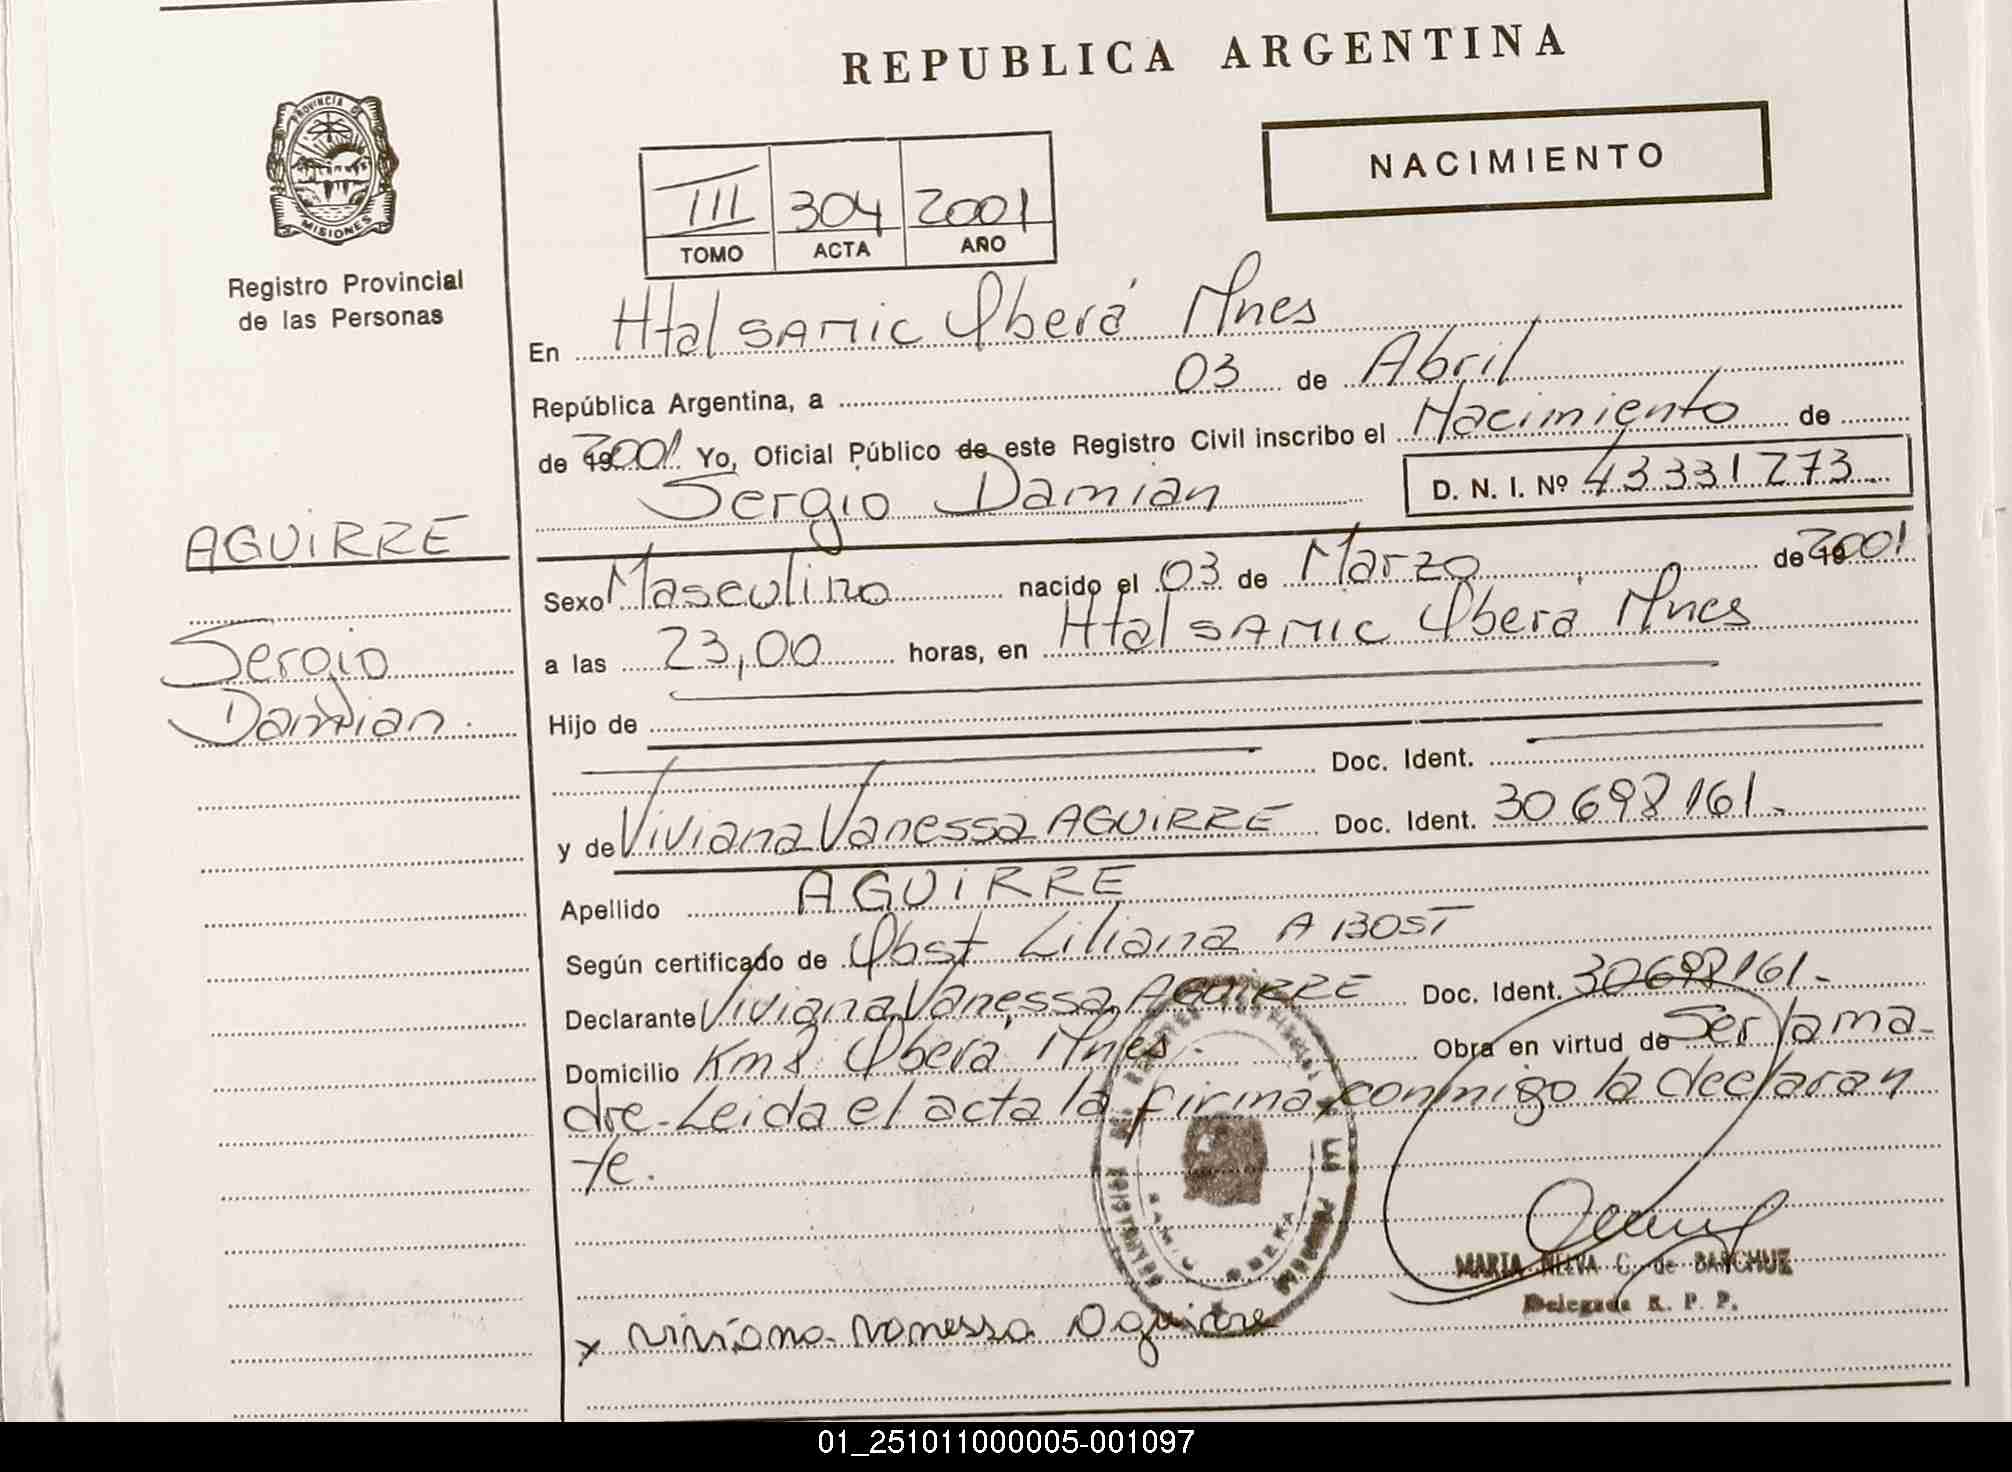 REPUBLICA ARGENTINA
PROVINCIA DE
MISIONES
Registro Provincial
de las Personas
NACIMIENTO
III 304 2001
TOMO ACTA AÑO
En Htal SAMIC Oberá Mnes
República Argentina, a 03 de Abril
de 19 2001 Yo, Oficial Público de este Registro Civil inscribo el Nacimiento de
Sergio Damian D. N. I. Nº 43331273
AGUIRRE
Sergio
Damian
Sexo Masculino nacido el 03 de Marzo de 19 2001
a las 23,00 horas, en Htal SAMIC Oberá Mnes
Hijo de
Doc. Ident.
y de Viviana Vanessa AGUIRRE Doc. Ident. 30698161.-
Apellido AGUIRRE
Según certificado de Obst Liliana A BOST
Declarante Viviana Vanessa AGUIRRE Doc. Ident. 30698161.-
Domicilio Km 8 Oberá Mnes.- Obra en virtud de Ser la ma-
dre-Leida el acta la firma conmigo la declaran
te.
SAMIC OBERA
MARIA C. de
Delegada R. P. P.
x viviana vanessa aguirre
01_251011000005-001097